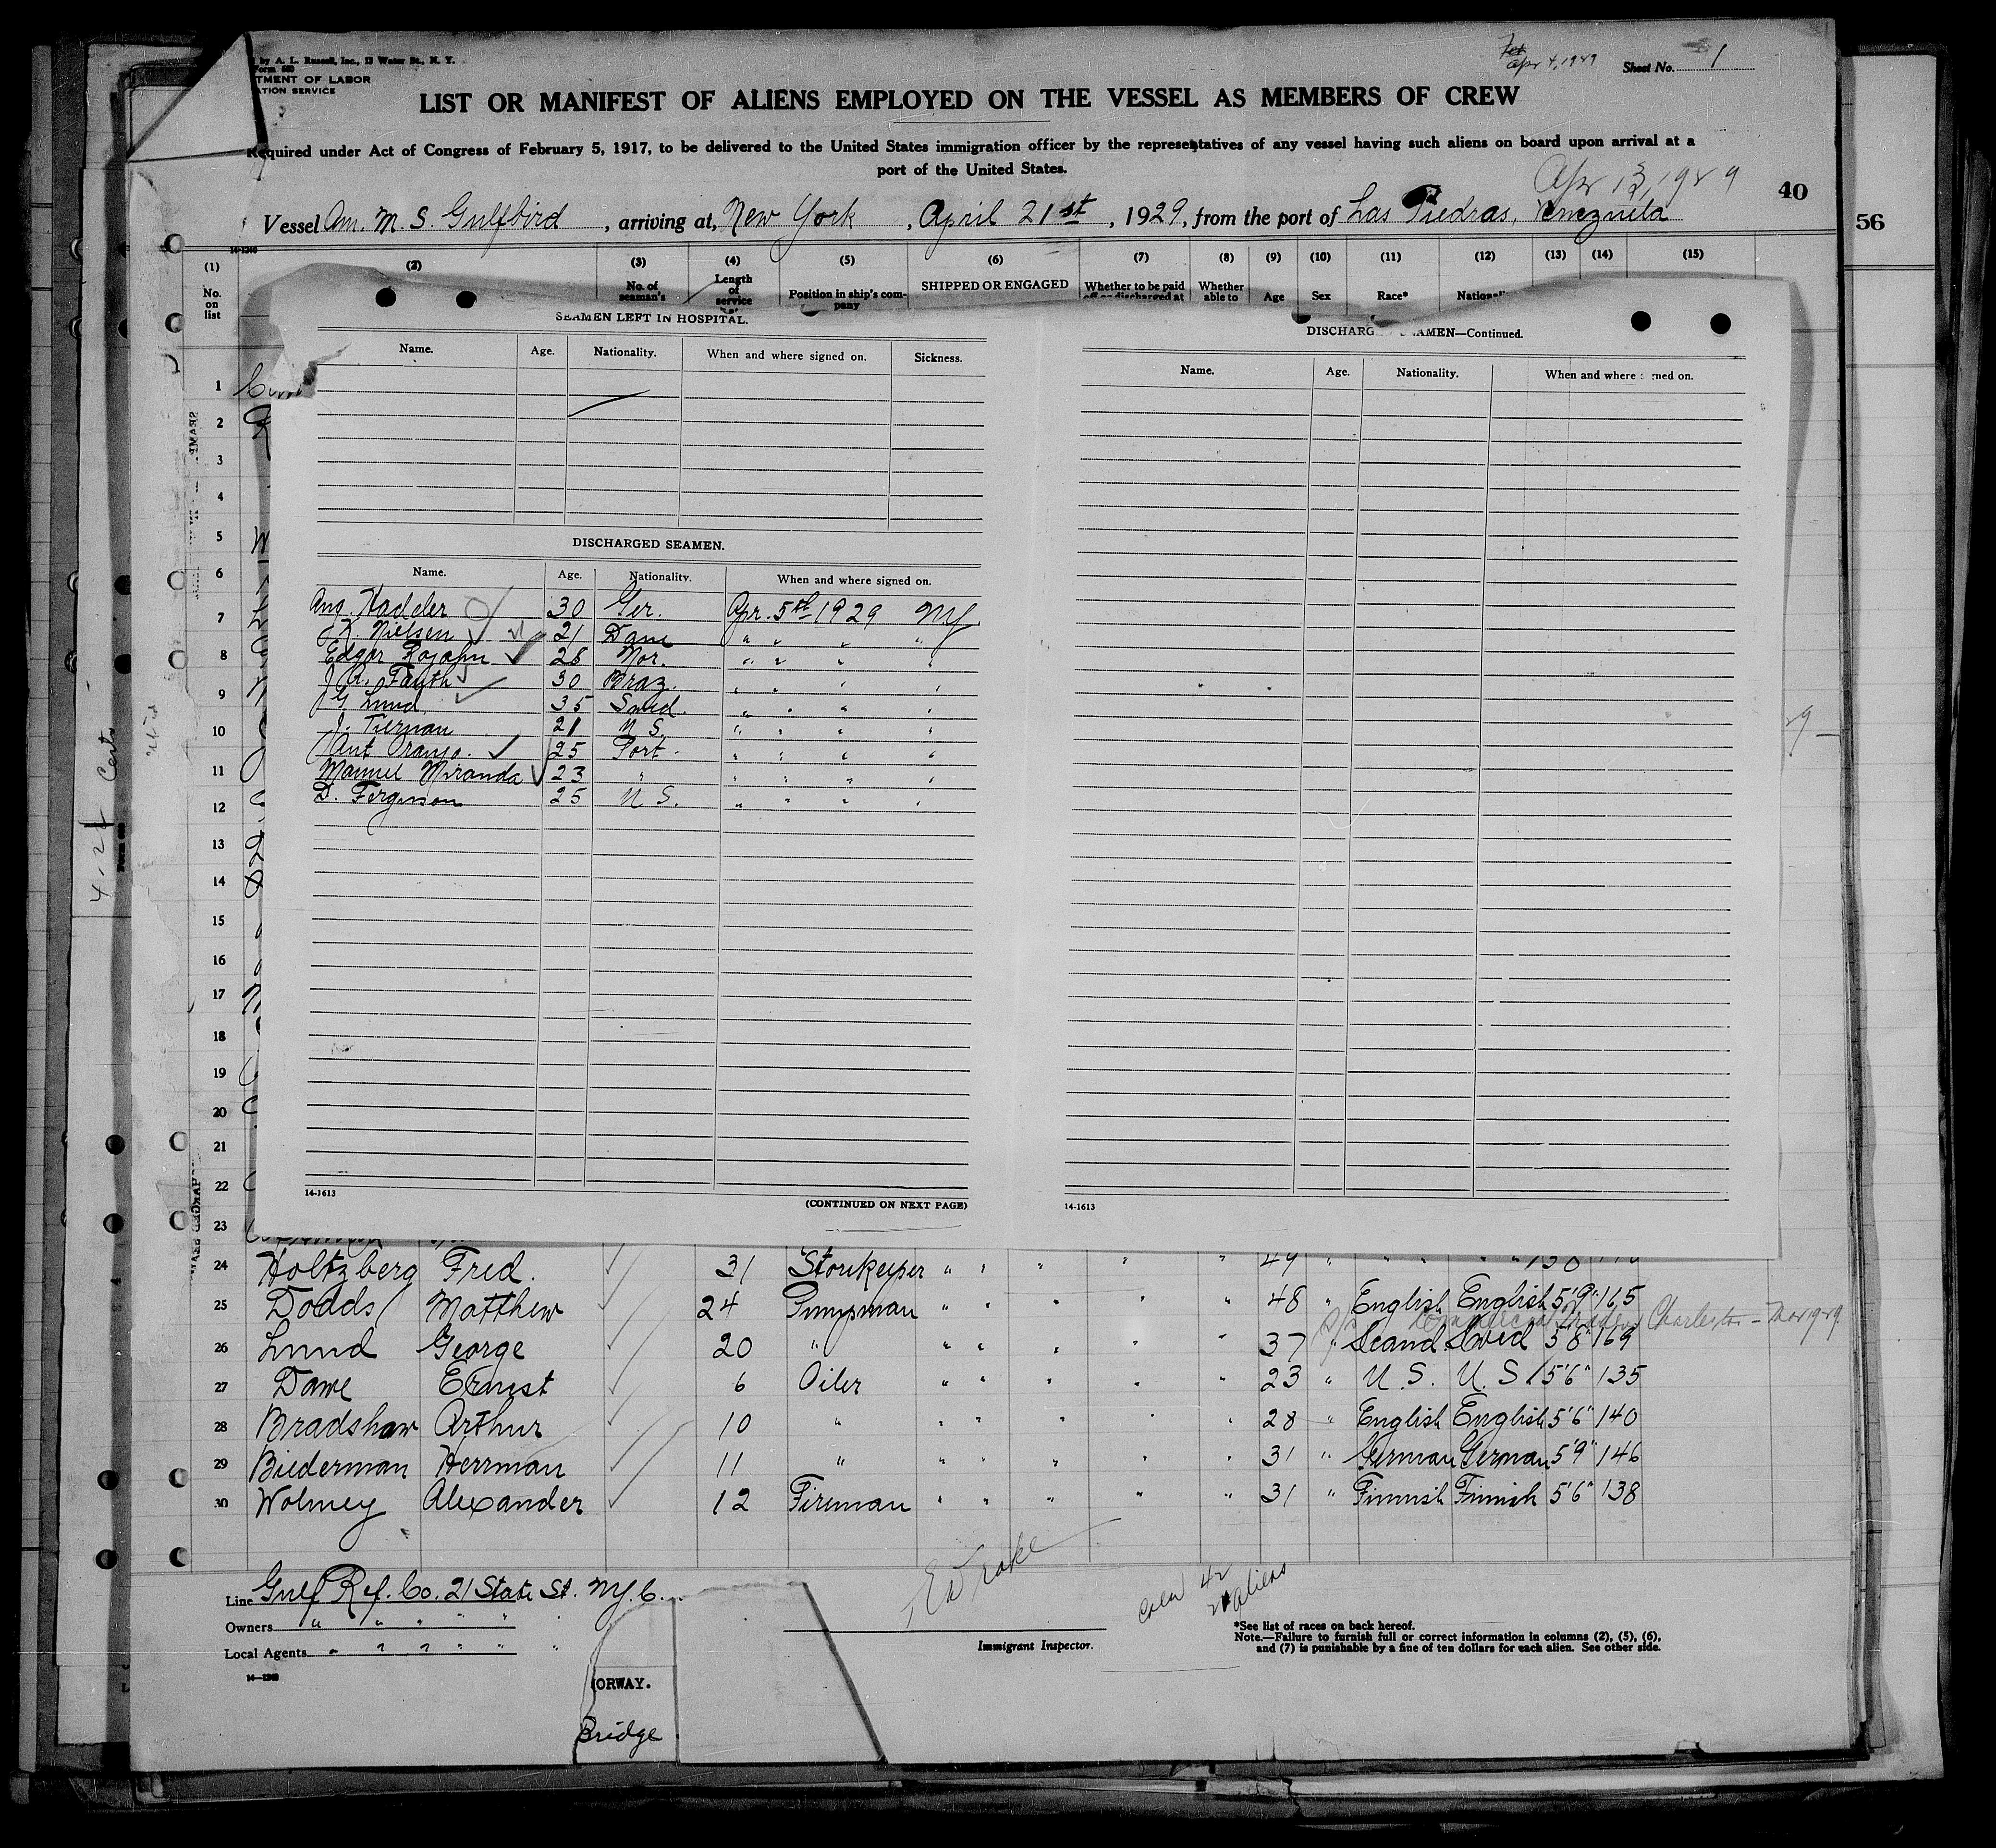 by A. L. Russell, Inc., 13 Water St., N. Y.
Form 680
TMENT OF LABOR
ATION SERVICE
Apr 4, 1929
Sheet No. 1
LIST OR MANIFEST OF ALIENS EMPLOYED ON THE VESSEL AS MEMBERS OF CREW
Required under Act of Congress of February 5, 1917, to be delivered to the United States immigration officer by the representatives of any vessel having such aliens on board upon arrival at a
port of the United States.
Apr 13, 1929
40
56
Vessel Am. M. S. Gulfbird, arriving at, New York, April 21st, 1929, from the port of Las Piedras, Venezuela
(1) (2) (3) (4) (5) (6) (7) (8) (9) (10) (11) (12) (13) (14) (15)
No. on list
No. of seaman's
Length of service
Position in ship's company
SHIPPED OR ENGAGED
Whether to be paid off or discharged at
Whether able to
Age
Sex
Race*
SEAMEN LEFT IN HOSPITAL.
Name. Age. Nationality. When and where signed on. Sickness.
DISCHARGED SEAMEN.
Name. Age. Nationality. When and where signed on.
Aug. Hadeler 30 Ger. Apr. 5th 1929 NY
Nielsen 21 Dane " " " "
Edgar Rojahn 28 Nor. " " " "
Fauth 30 Braz. " " " "
G. Lund 35 Swed. " " " "
J. Tiernan 21 U S. " " " "
Ant Oranjo. 25 Port. " " " "
Manuel Miranda 23 " " " " "
D. Ferguson 25 U S. " " " "
14-1613
(CONTINUED ON NEXT PAGE)
DISCHARG AMEN—Continued.
Name. Age. Nationality. When and where signed on.
14-1613
1
2
3
4
5
6
7
8
9
10
11
12
13
14
15
16
17
18
19
20
21
22
23
24 Holtzberg Fred. 31 Storekeeper " " " " " 49 " " "
25 Dodds Matthew 24 Pumpman " " " " " 48 " English English 5'9" 165
Charleston - Mar 19-29
26 Lund George 20 " " " " " " 37 " Scand. Swed 5'8" 169
27 Dawe Ernest 6 Oiler " " " " " 23 " U. S. U. S. 5'6" 135
28 Bradshaw Arthur 10 " " " " " " 28 " English English 5'6" 140
29 Biederman Herrman 11 " " " " " " 31 " German German 5'9" 146
30 Wolmey Alexander 12 Fireman " " " " " 31 " Finnish Finnish 5'6" 138
Line Gulf Ref. Co. 21 State St. N.Y.C.
Owners " " " " "
Local Agents " " " " " "
14—1240
Immigrant Inspector.
Crew 42
aliens
*See list of races on back hereof.
Note.—Failure to furnish full or correct information in columns (2), (5), (6),
and (7) is punishable by a fine of ten dollars for each alien. See other side.
ORWAY.
Bridge